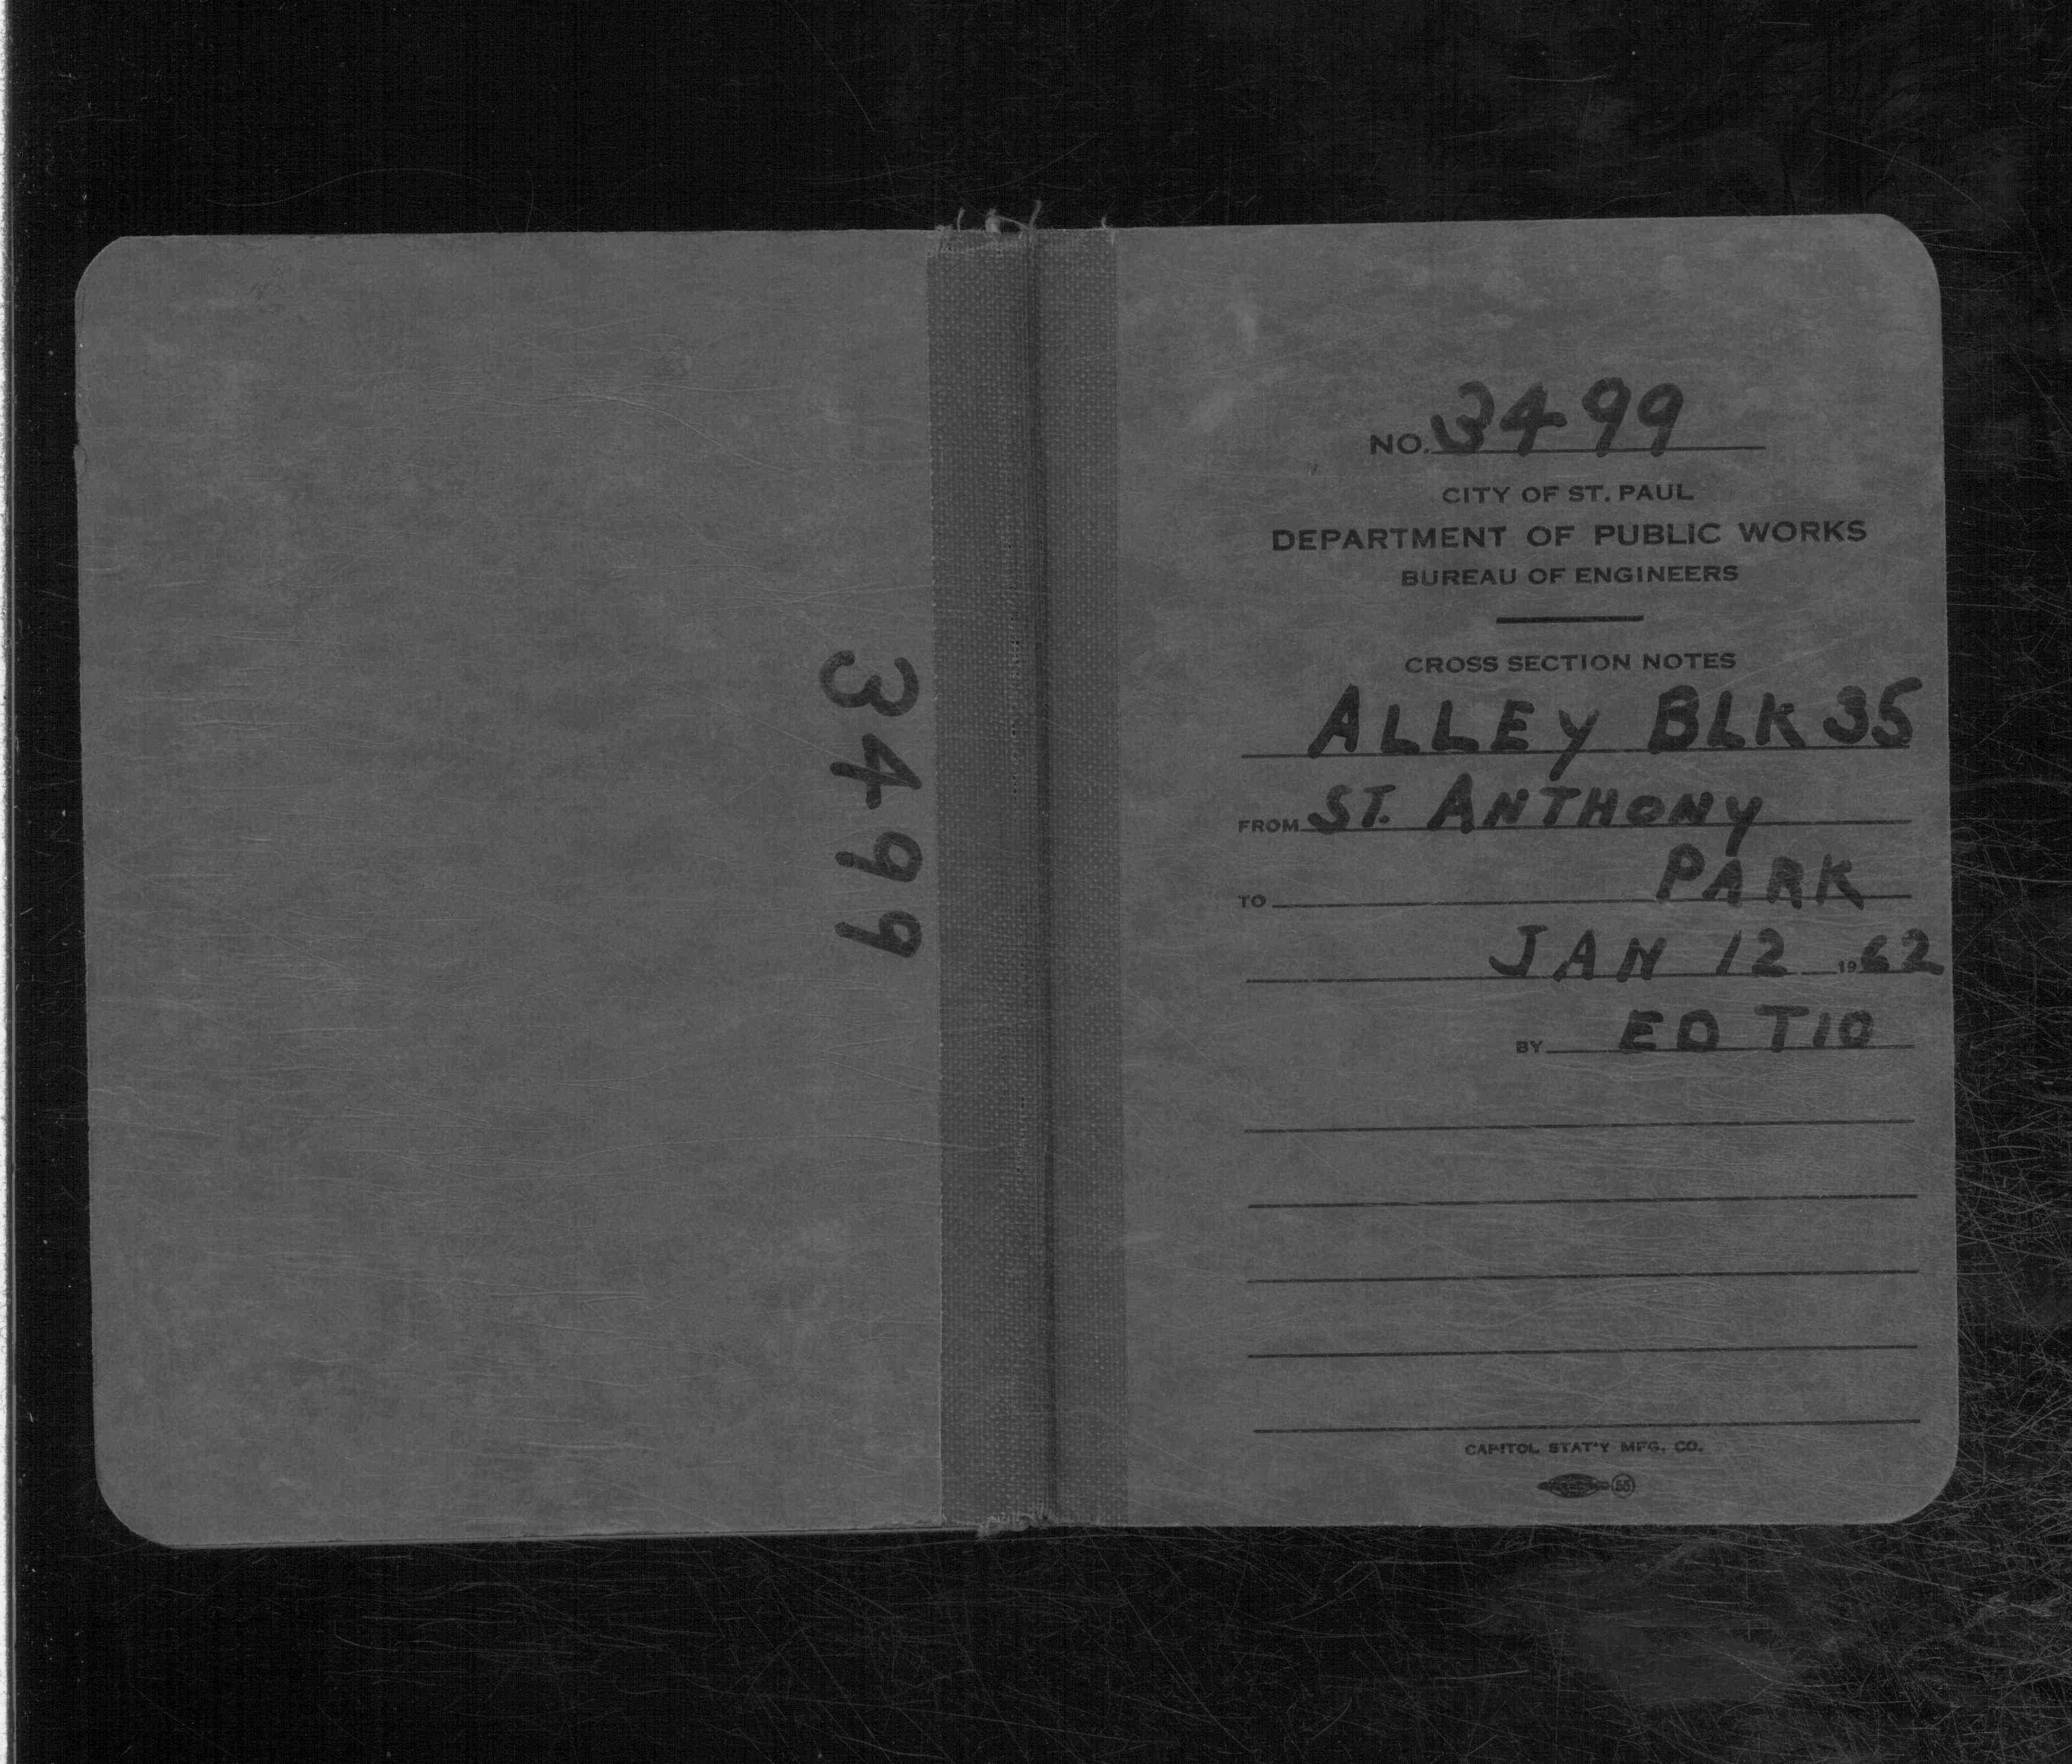 3499
NO. 3499
CITY OF ST. PAUL
DEPARTMENT OF PUBLIC WORKS
BUREAU OF ENGINEERS
CROSS SECTION NOTES
ALLEY BLK 35
FROM ST. ANTHONY
TO PARK
JAN 12 1962
BY ED TIO
CAPITOL STAT'Y MFG. CO.
55